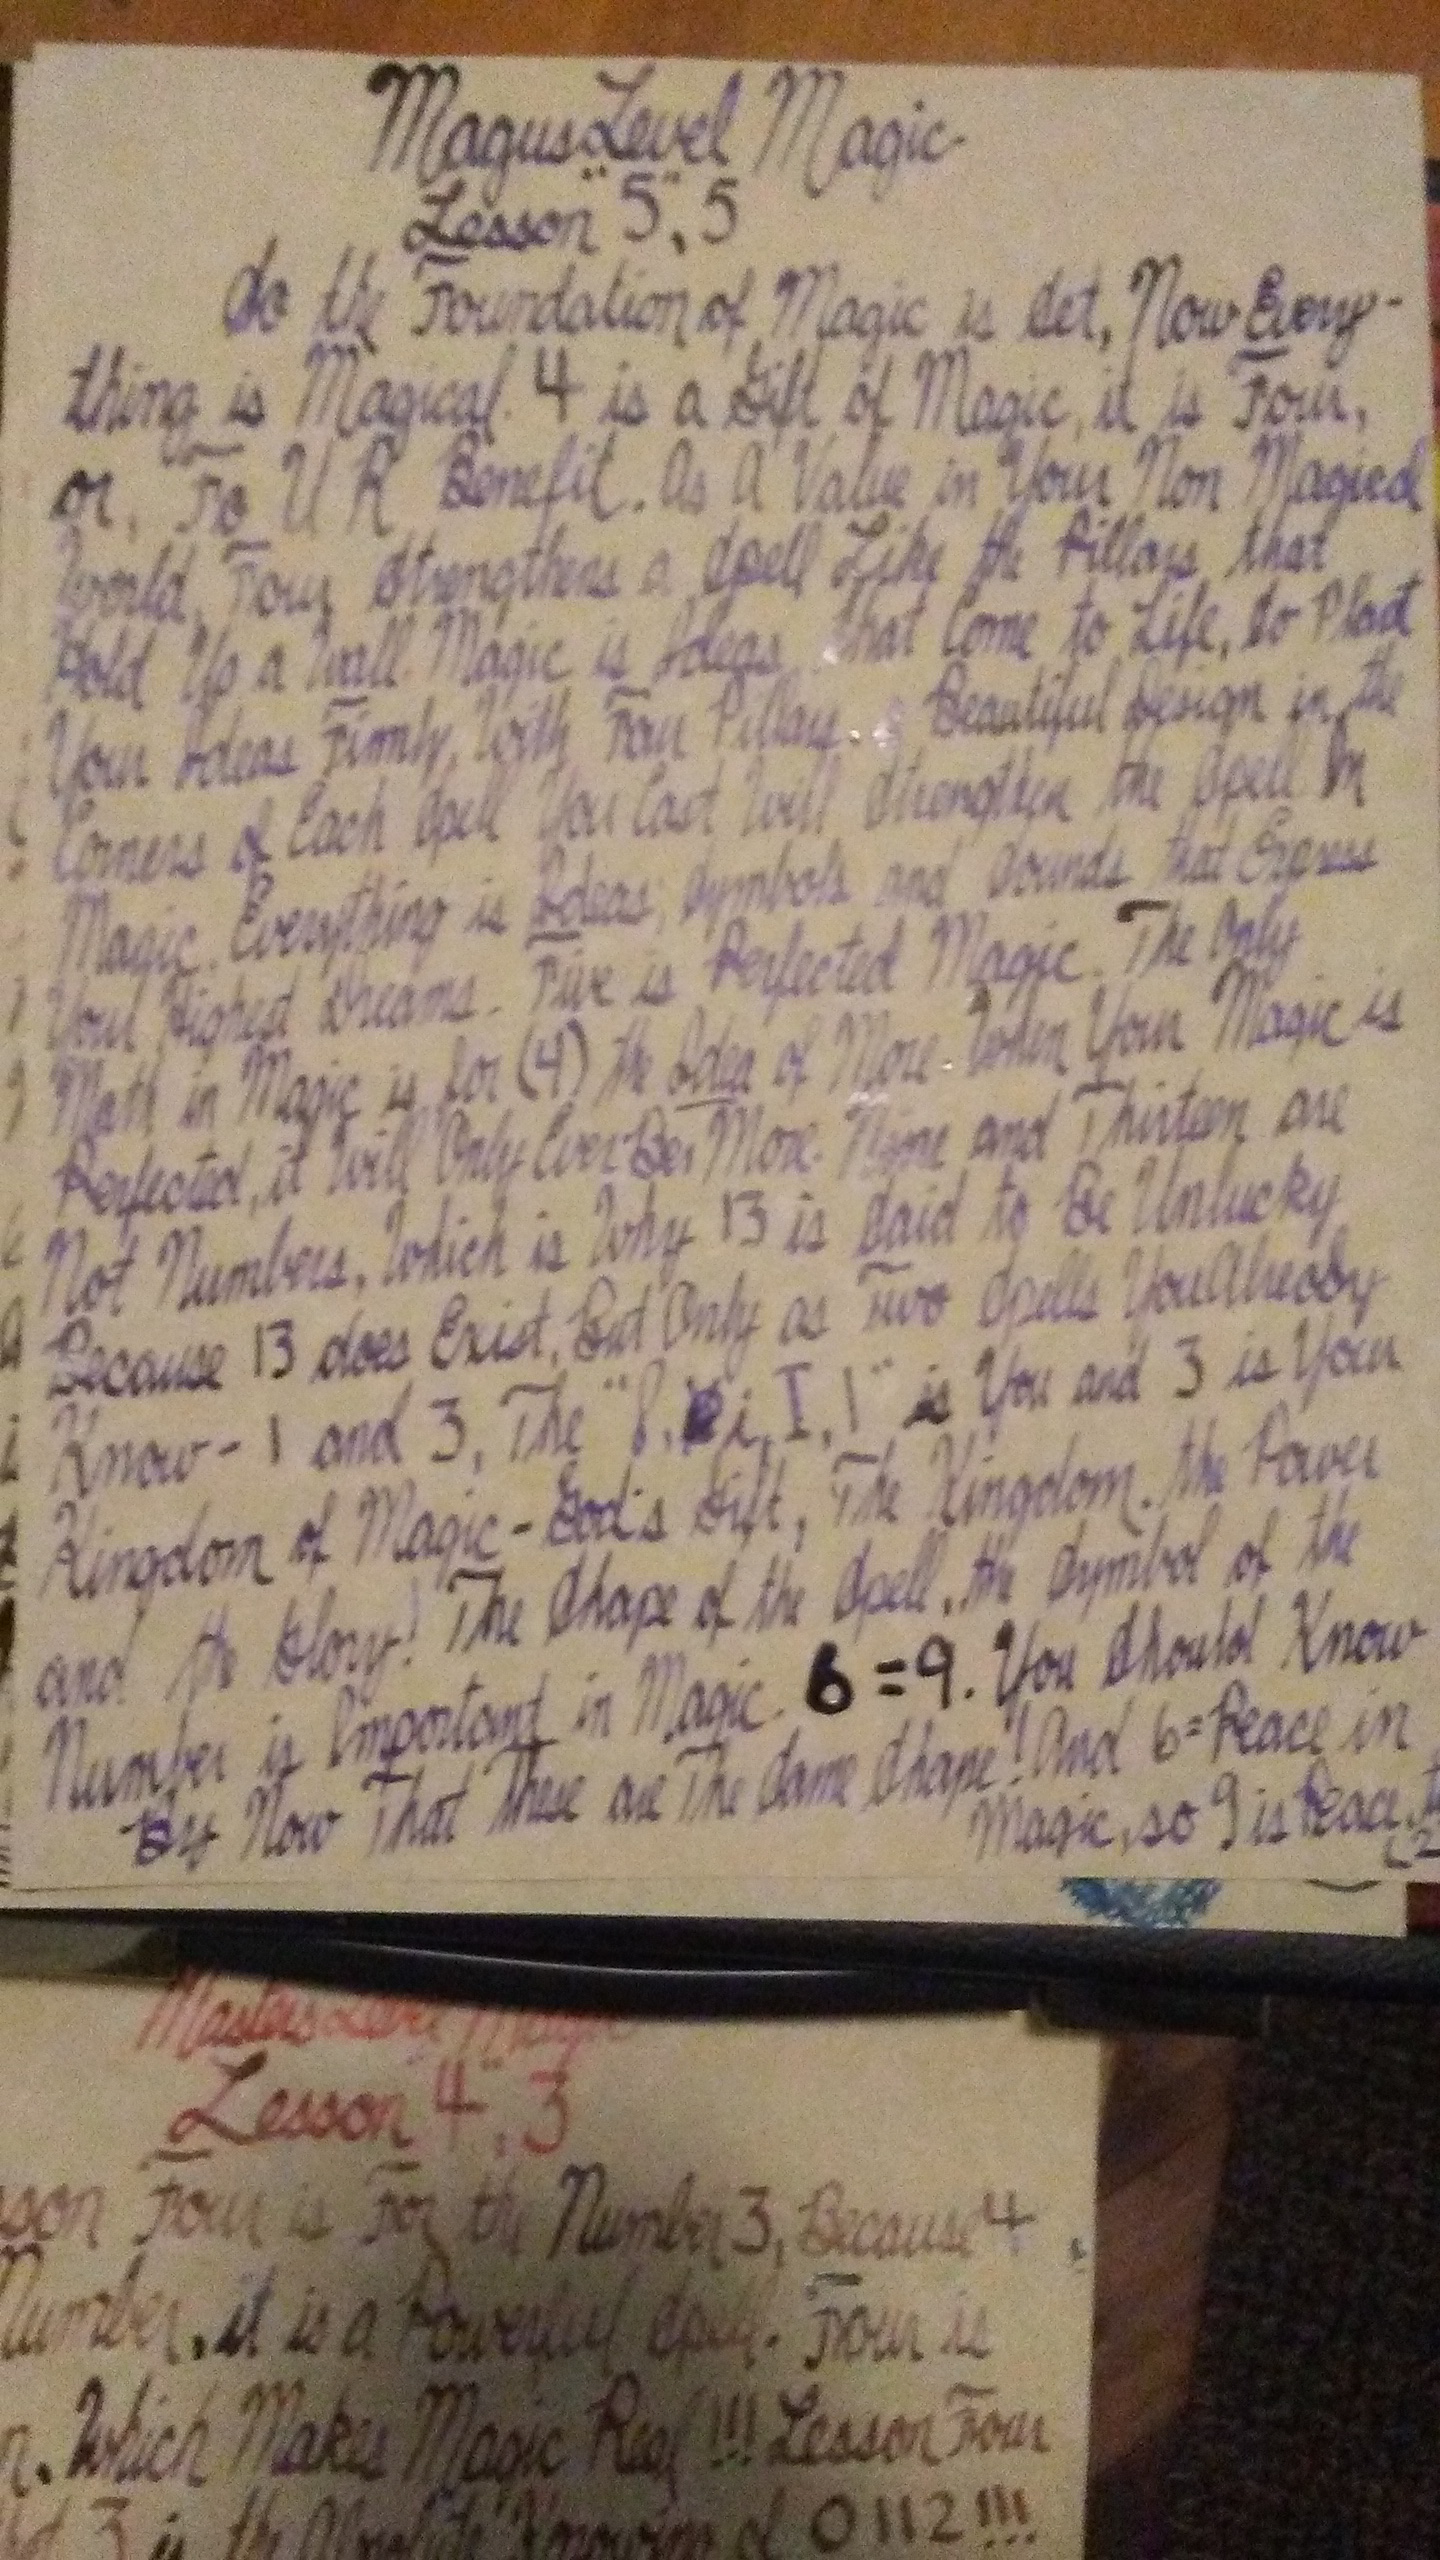 Magus Level Magic
Lesson "5", 5
So the Foundation of Magic is Set, Now Every-
thing is Magical. 4 is a Gift of Magic, it is Four,
or, Fo U R Benefit. As A Value in Your Non Magical
World, Four Strengthens a Spell Like the Pillars that
Hold Up a Wall. Magic is Ideas that Come to Life, So Plant
Your Ideas Firmly, With Four Pillars. Beautiful Design in the
Corners of Each Spell You Cast Will Strengthen the Spell In
Magic. Everything is Ideas, Symbols and Sounds that Express
Your Highest Dreams. Five is Perfected Magic. The Only
Math in Magic is for (4) the Idea of More. When Your Magic is
Perfected, it Will Only Ever Be, More. Nine and Thirteen are
Not Numbers, Which is Why 13 is Said to Be Unlucky
Because 13 does Exist, But Only as Two Spells You Already
Know - 1 and 3, The " i, I, 1" is You and 3 is Your
Kingdom of Magic - God's Gift, The Kingdom, the Power
and the Glory! The Shape of the Spell, the Symbol of the
Number is Important in Magic. 6 = 9. You Should Know
By Now That These are The Same Shape! And 6 = Peace in
Magic, so 9 is Peace,
Masters Level Magic
Lesson "4", 3
Four is For the Number 3, Because 4
Number, it is a Powerful Spell. Four is
Which Makes Magic Real!!! Lesson Four
3 is the Absolute Knowing of 0112!!!